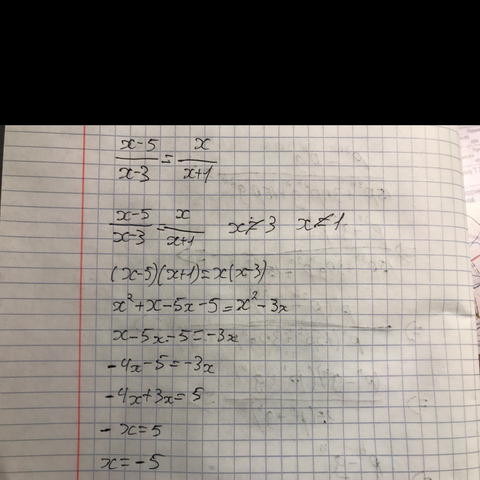 (x-5)/(x-3) = x/(x+1)
(x-5)/(x-3) = x/(x+1) x≠3 x≠1
(x-5)(x+1)=x(x-3)
x²+x-5x-5=x²-3x
x-5x-5=-3x
-4x-5=-3x
-4x+3x=5
-x=5
x=-5